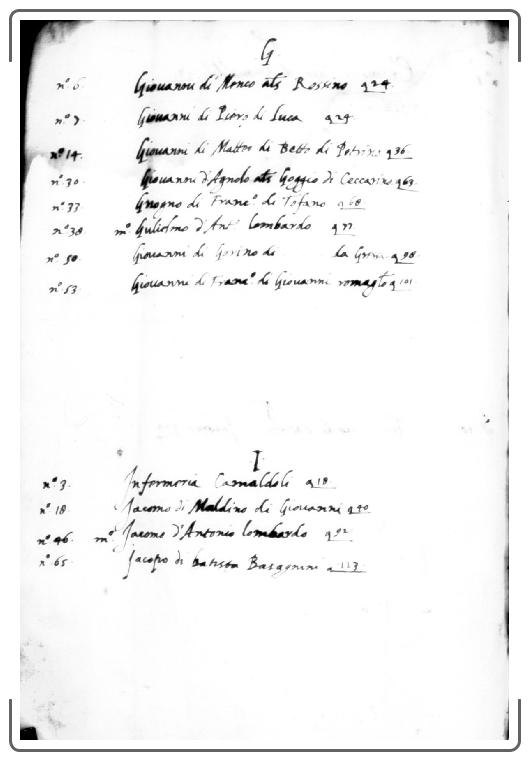 G
nº 6. Giovanni di Menco als Rossino q 24
nº 7. Giovanni di Piero di Luca q 24
nº 14. Giovanni di Matteo di Betto di Petrino q 36
nº 30 Giovanni d'Agnolo als Goggio di Ceccarino q 63
nº 33 di Franc.º di Tofano q 68
nº 38 mº Gulielmo d'Antº lombardo q 77
nº 50. Giovanni di Gorino di la q 98
nº 53. Giovanni di Franc.º di Giovanni q 101
I
nº 3. Infermeria Camaldoli q 18
nº 18 Jacomo di Maldino di Giovanni q 40
nº 46. mº Jacomo d'Antonio lombardo q 92
nº 65. Jacopo di batista q 113